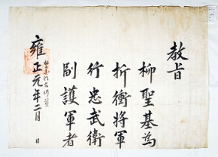 教旨
柳聖基爲
折衝將軍
行忠武衛
副護軍者
雍正元年二月　日